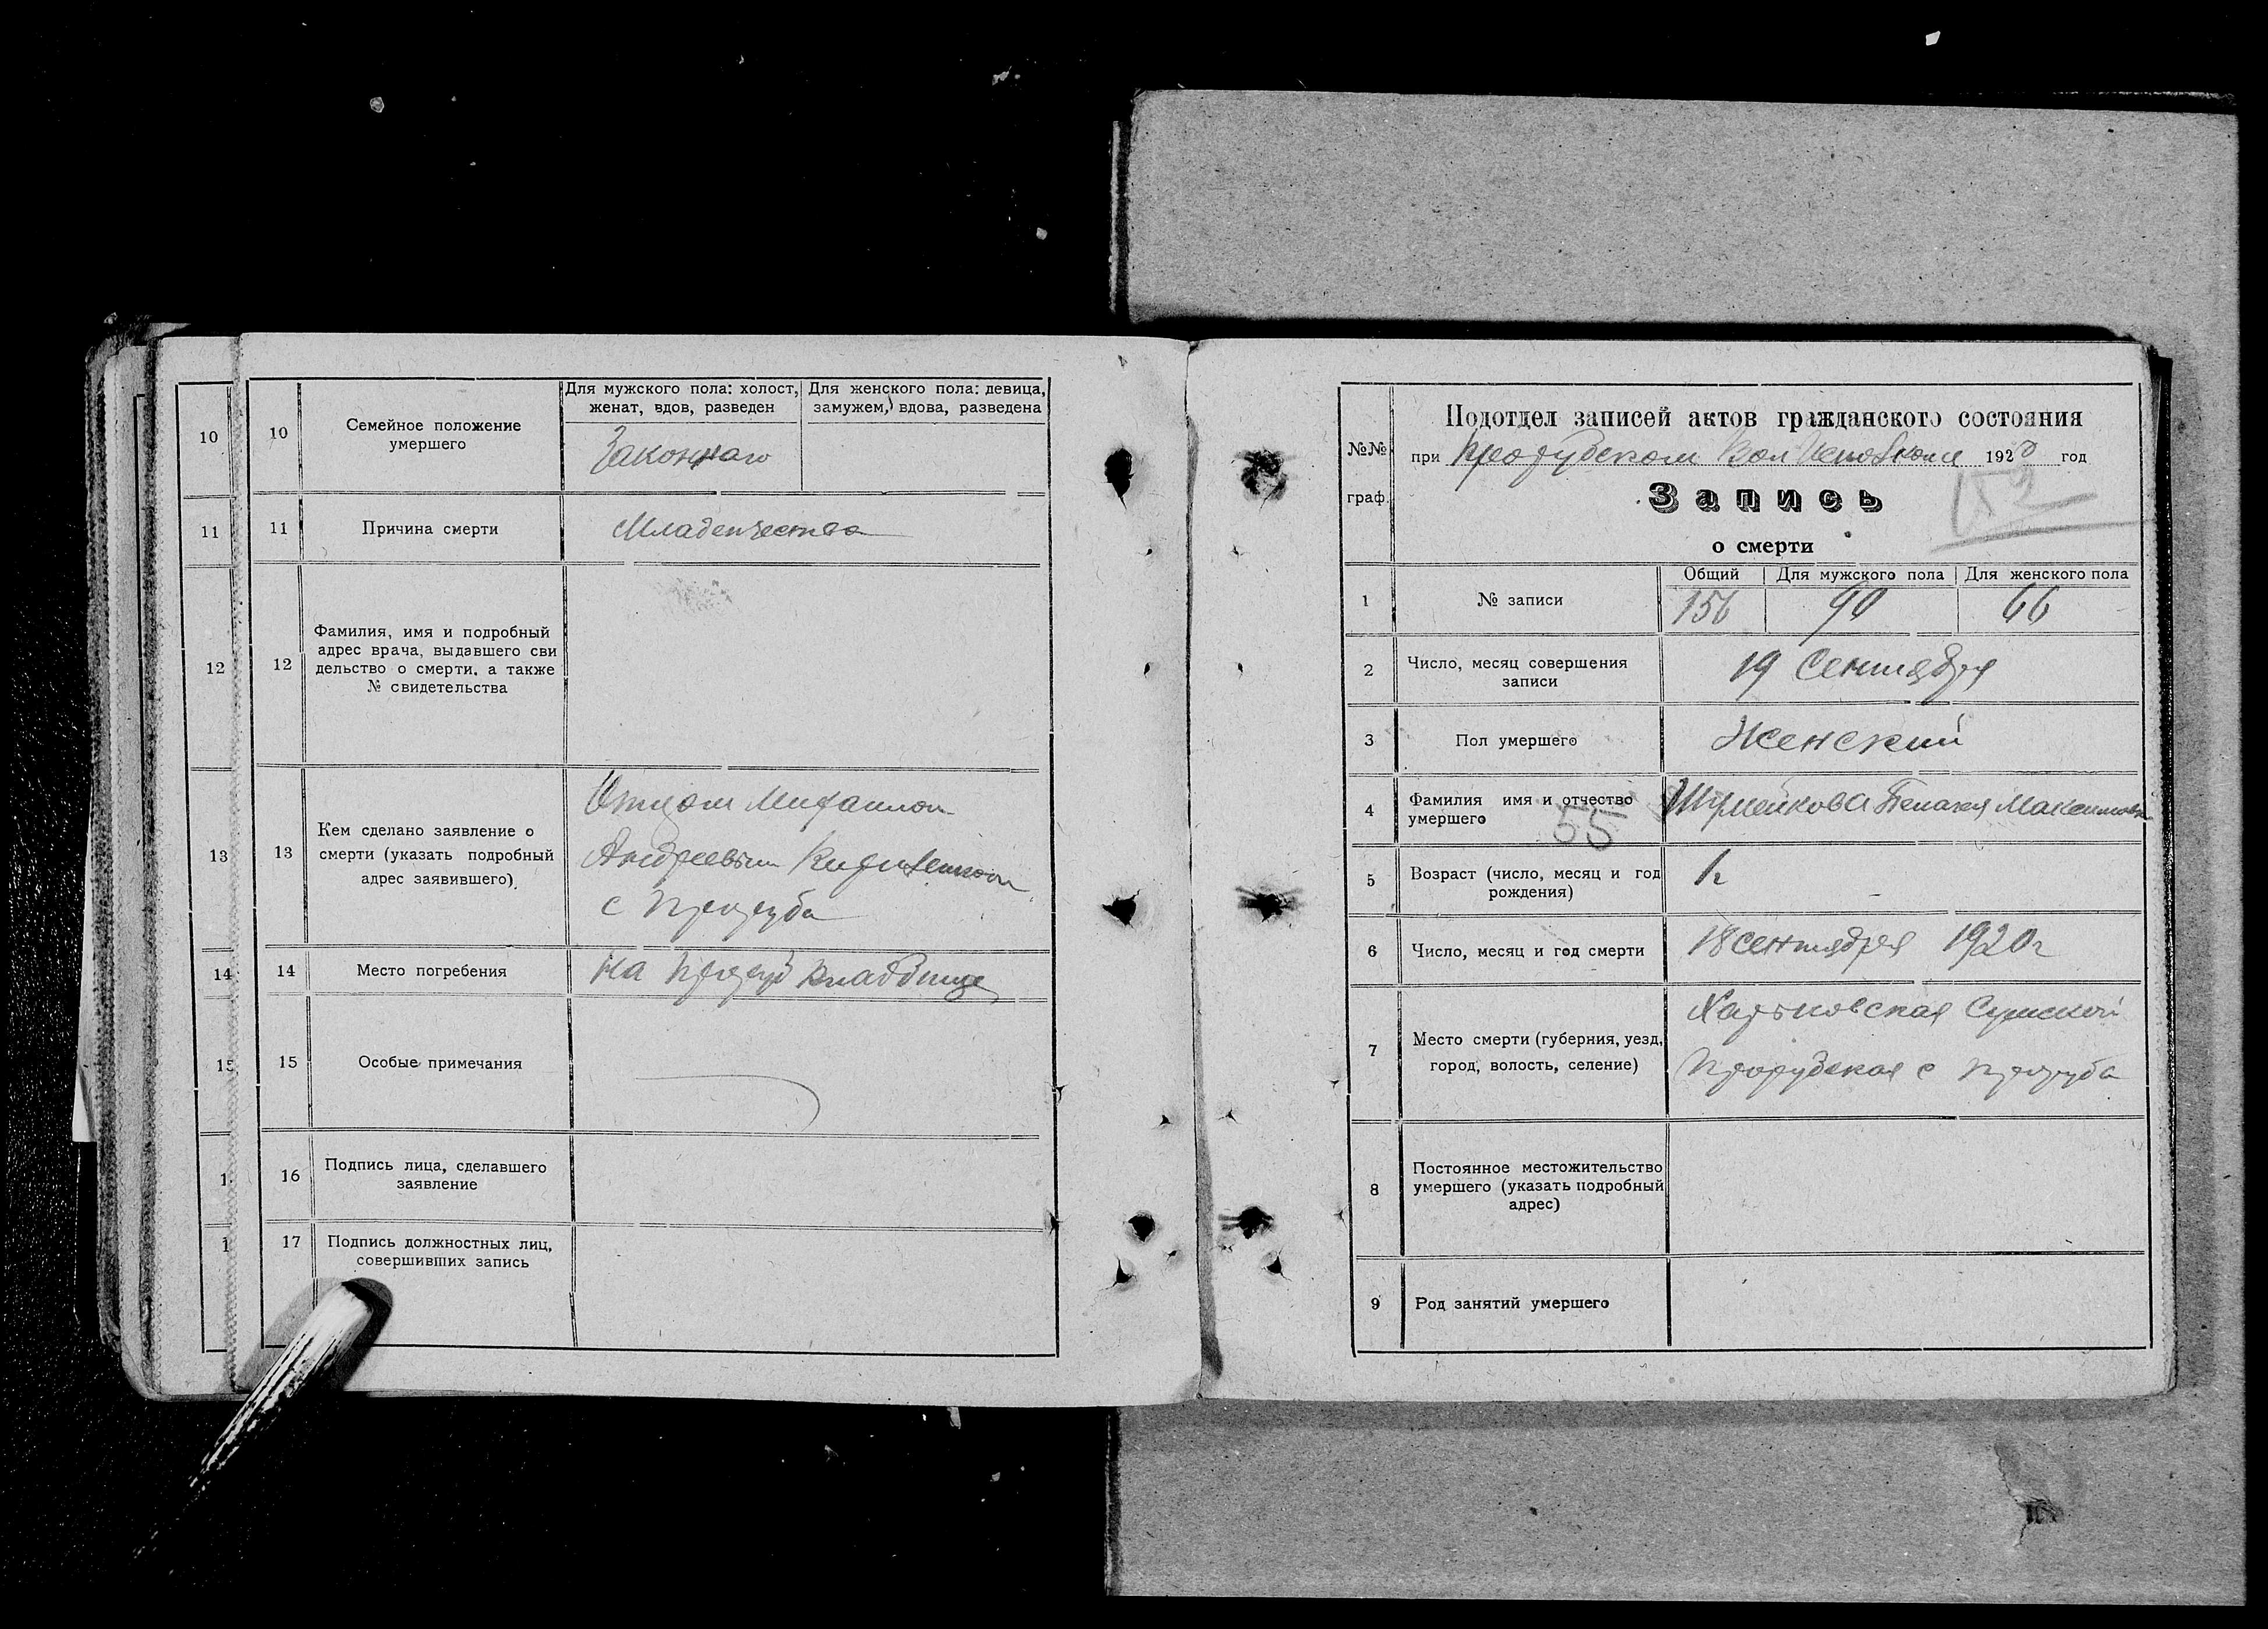 10
11
12
13
14
15
1
1
10
Семейное положение
умершего
Для мужского пола: холост,
женат, вдов, разведен
Для женского пола: девица,
замужем, вдова, разведена
Законнаго
11
Причина смерти
Младенчества
12
Фамилия, имя и подробный
адрес врача, выдавшего сви
дельство о смерти, а также
№ свидетельства
13
Кем сделано заявление о
смерти (указать подробный
адрес заявившего)
Отцом Михаилом
Андреевым
с Проруба
14
Место погребения
на Проруб кладбище
15
Особые примечания
16
Подпись лица, сделавшего
заявление
17
Подпись должностных лиц,
совершивших запись
№№
граф.
Подотдел записей актов гражданского состояния
при Прорубском Вол Исполкоме 1920 год
Запись
о смерти
1
№ записи
Общий
Для мужского пола
Для женского пола
156
90
66
2
Число, месяц совершения
записи
19 Сентября
3
Пол умершего
Женский
4
Фамилия имя и отчество
умершего
55
Пелагея Максимовна
5
Возраст (число, месяц и год
рождения)
1 г
6
Число, месяц и год смерти
18 сентября 1920 г
7
Место смерти (губерния, уезд,
город, волость, селение)
Харьковская Сумской
Прорубская с Проруба
8
Постоянное местожительство
умершего (указать подробный
адрес)
9
Род занятий умершего